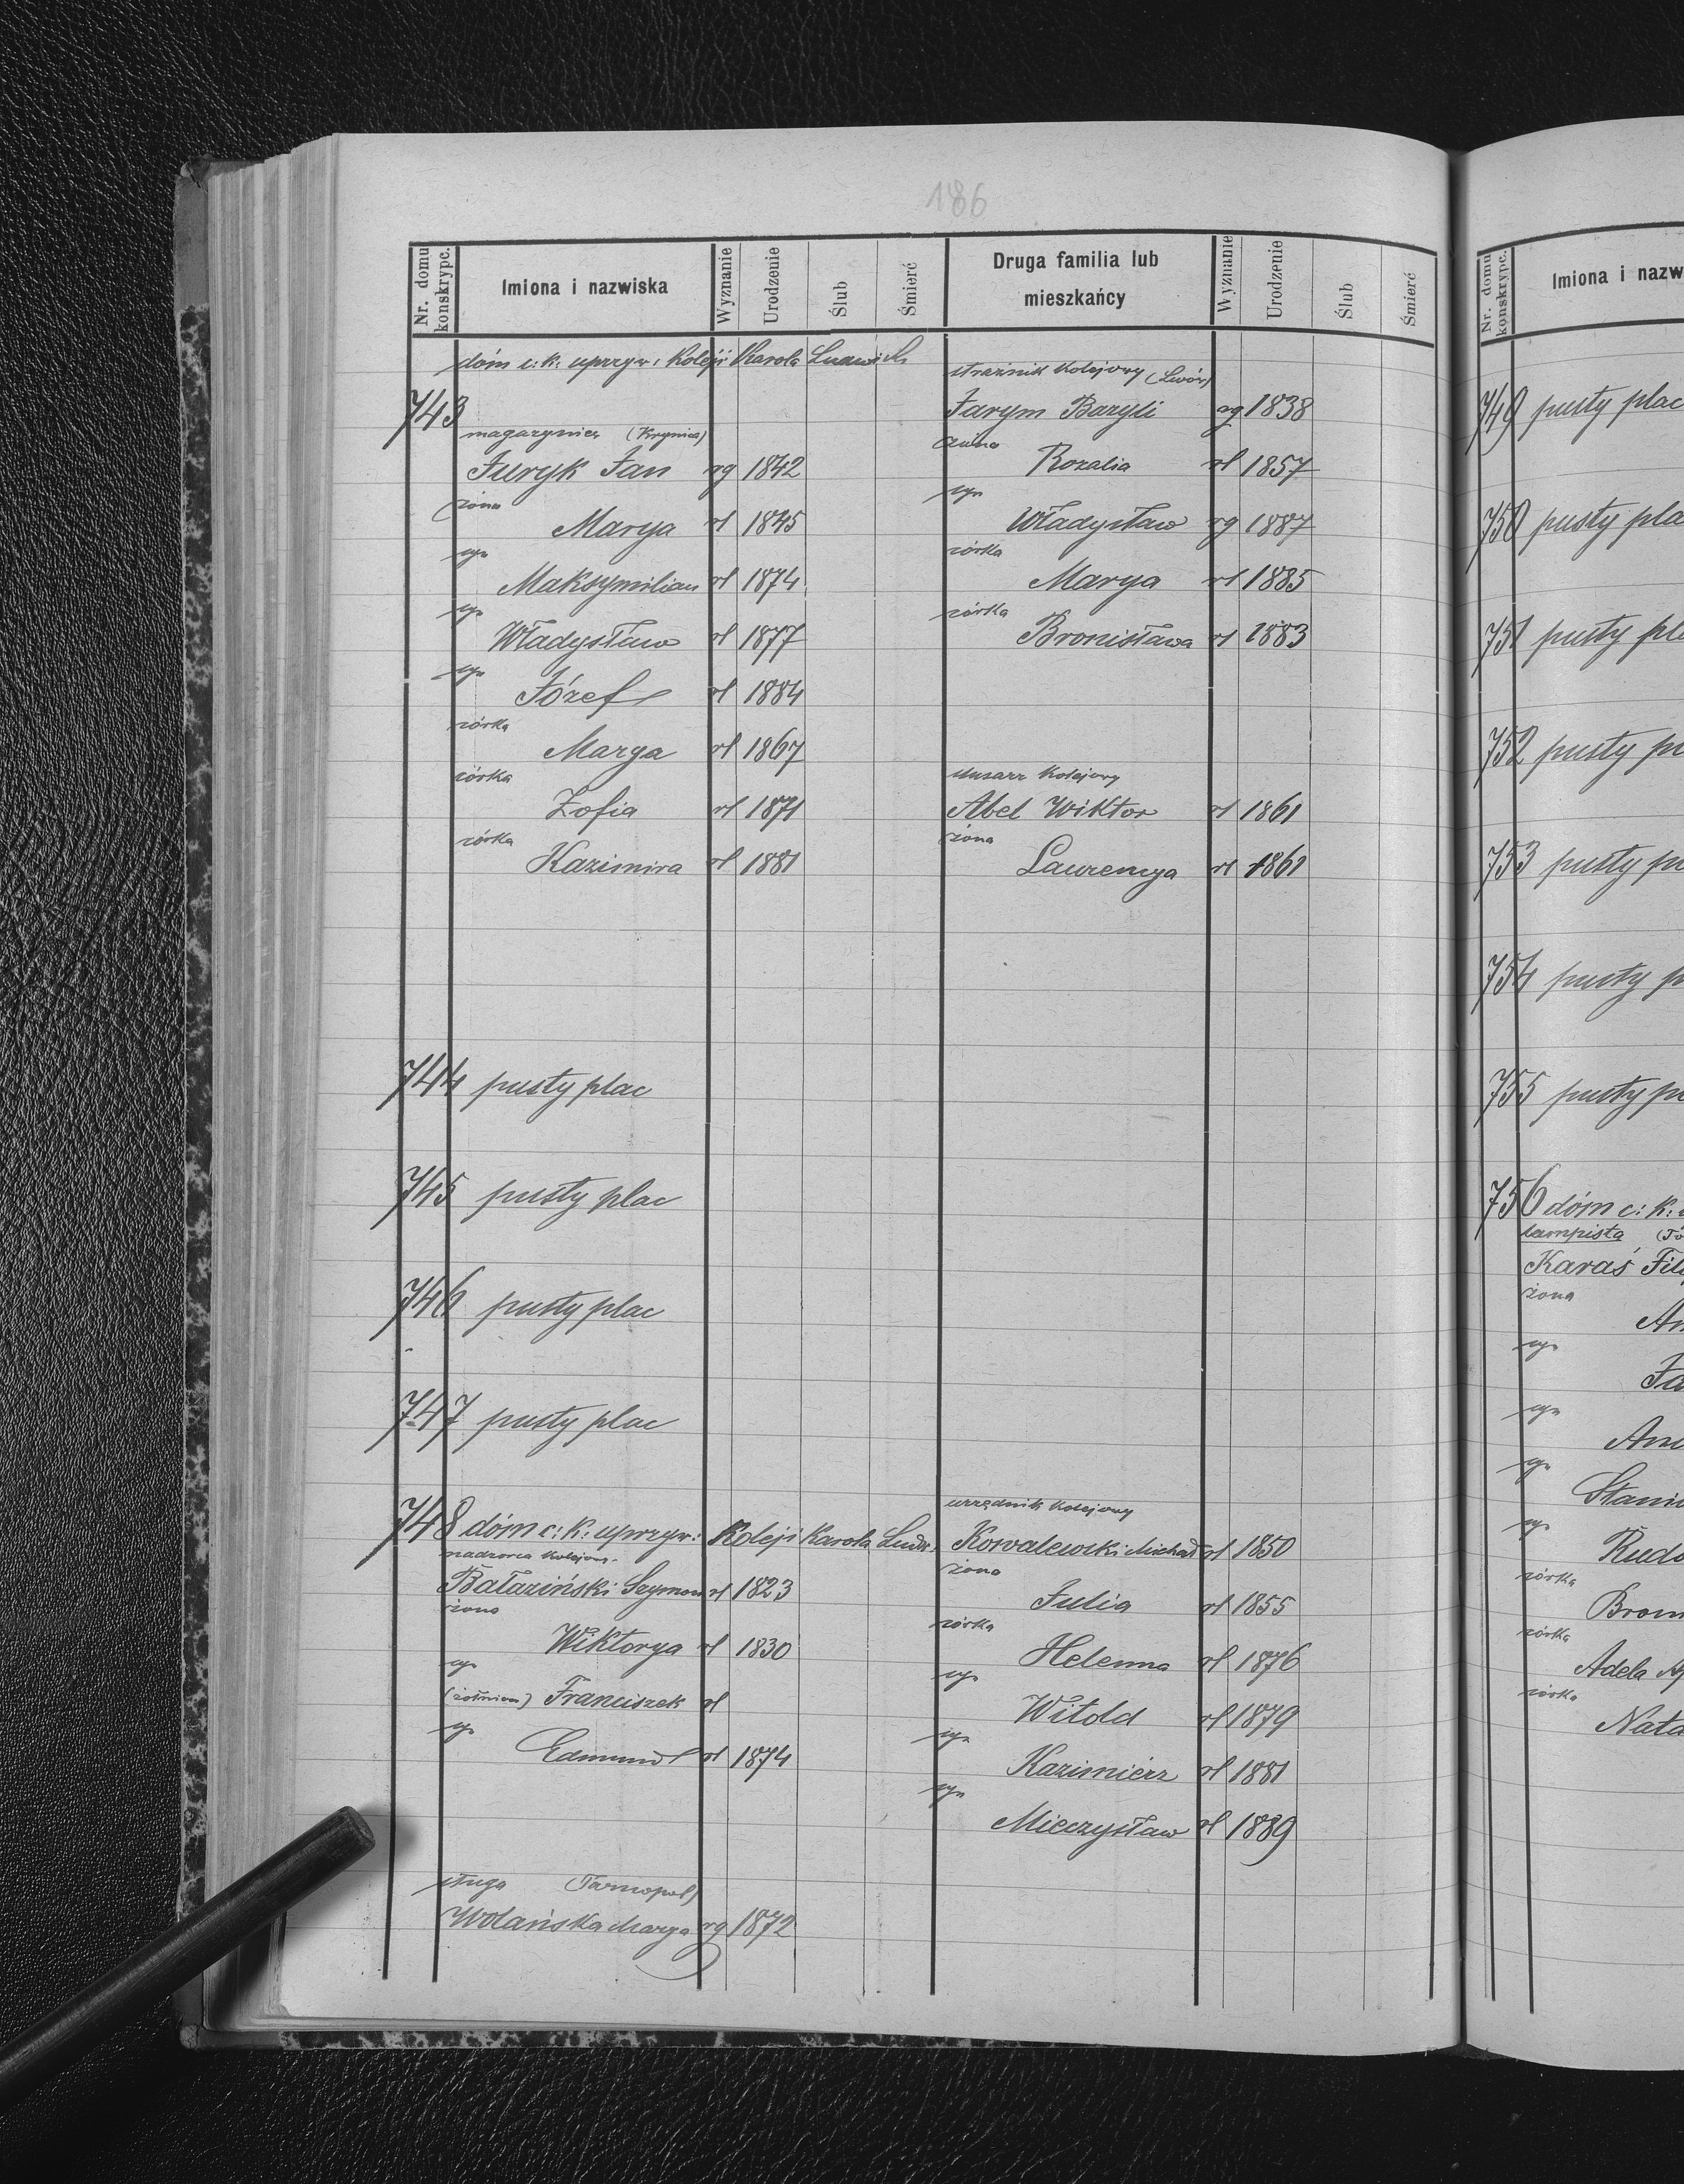 186
Nr. domu konskrypc.
Imiona i nazwiska
Wyznanie
Urodzenie
Ślub
Śmierć
Druga familia lub mieszkańcy
Wyznanie
Urodzenie
Ślub
Śmierć
dóm c: k: uprzyw: Koleji Karola Ludwika
743
magazynier (Krynica)
Juryk Jan rg 1842
żona
Marya rl 1845
syn
Maksymilian rl 1874
syn
Władysław rl 1877
syn
Józef rl 1884
córka
Marya rl 1867
córka
Zofia rl 1871
córka
Kazimira rl 1881
744 pusty plac
745 pusty plac
746 pusty plac
747 pusty plac
748 dóm c: k: uprzyw: Koleji Karola Ludw.
nadzorca kolejow.
Bałaziński Szymon rl 1823
żona
Wiktorya rl 1830
syn
(żołnierz) Franciszek rl
syn
Edmund rl 1874
sługa (Tarnopol)
Wolańska Marya rg 1872
strażnik kolejowy (Lwów)
Jarym Bazyli rg 1838
żona
Rozalia rl 1857
syn
Władysław rg 1887
córka
Marya rl 1885
córka
Bronisława rl 1883
ślusarz kolejowy
Abel Wiktor rl 1861
żona
Laurencya rl 1861
urzędnik kolejowy
Kowalewski Michał rl 1850
żona
Julia rl 1855
córka
Helenna rl 1876
syn
Witold rl 1879
syn
Kazimierz rl 1881
syn
Mieczysław rl 1889
Nr. domu konskrypc.
Imiona i nazw
749 pusty plac
750 pusty pla
751 pusty pla
752 pusty p
753 pusty p
754 pusty p
755 pusty p
756 dóm c: k:
lampista
Karaś Fili
żona
An
syn
Ja
syn
An
syn
Stani
syn
Rudo
córka
Bron
córka
Adela
córka
Nata